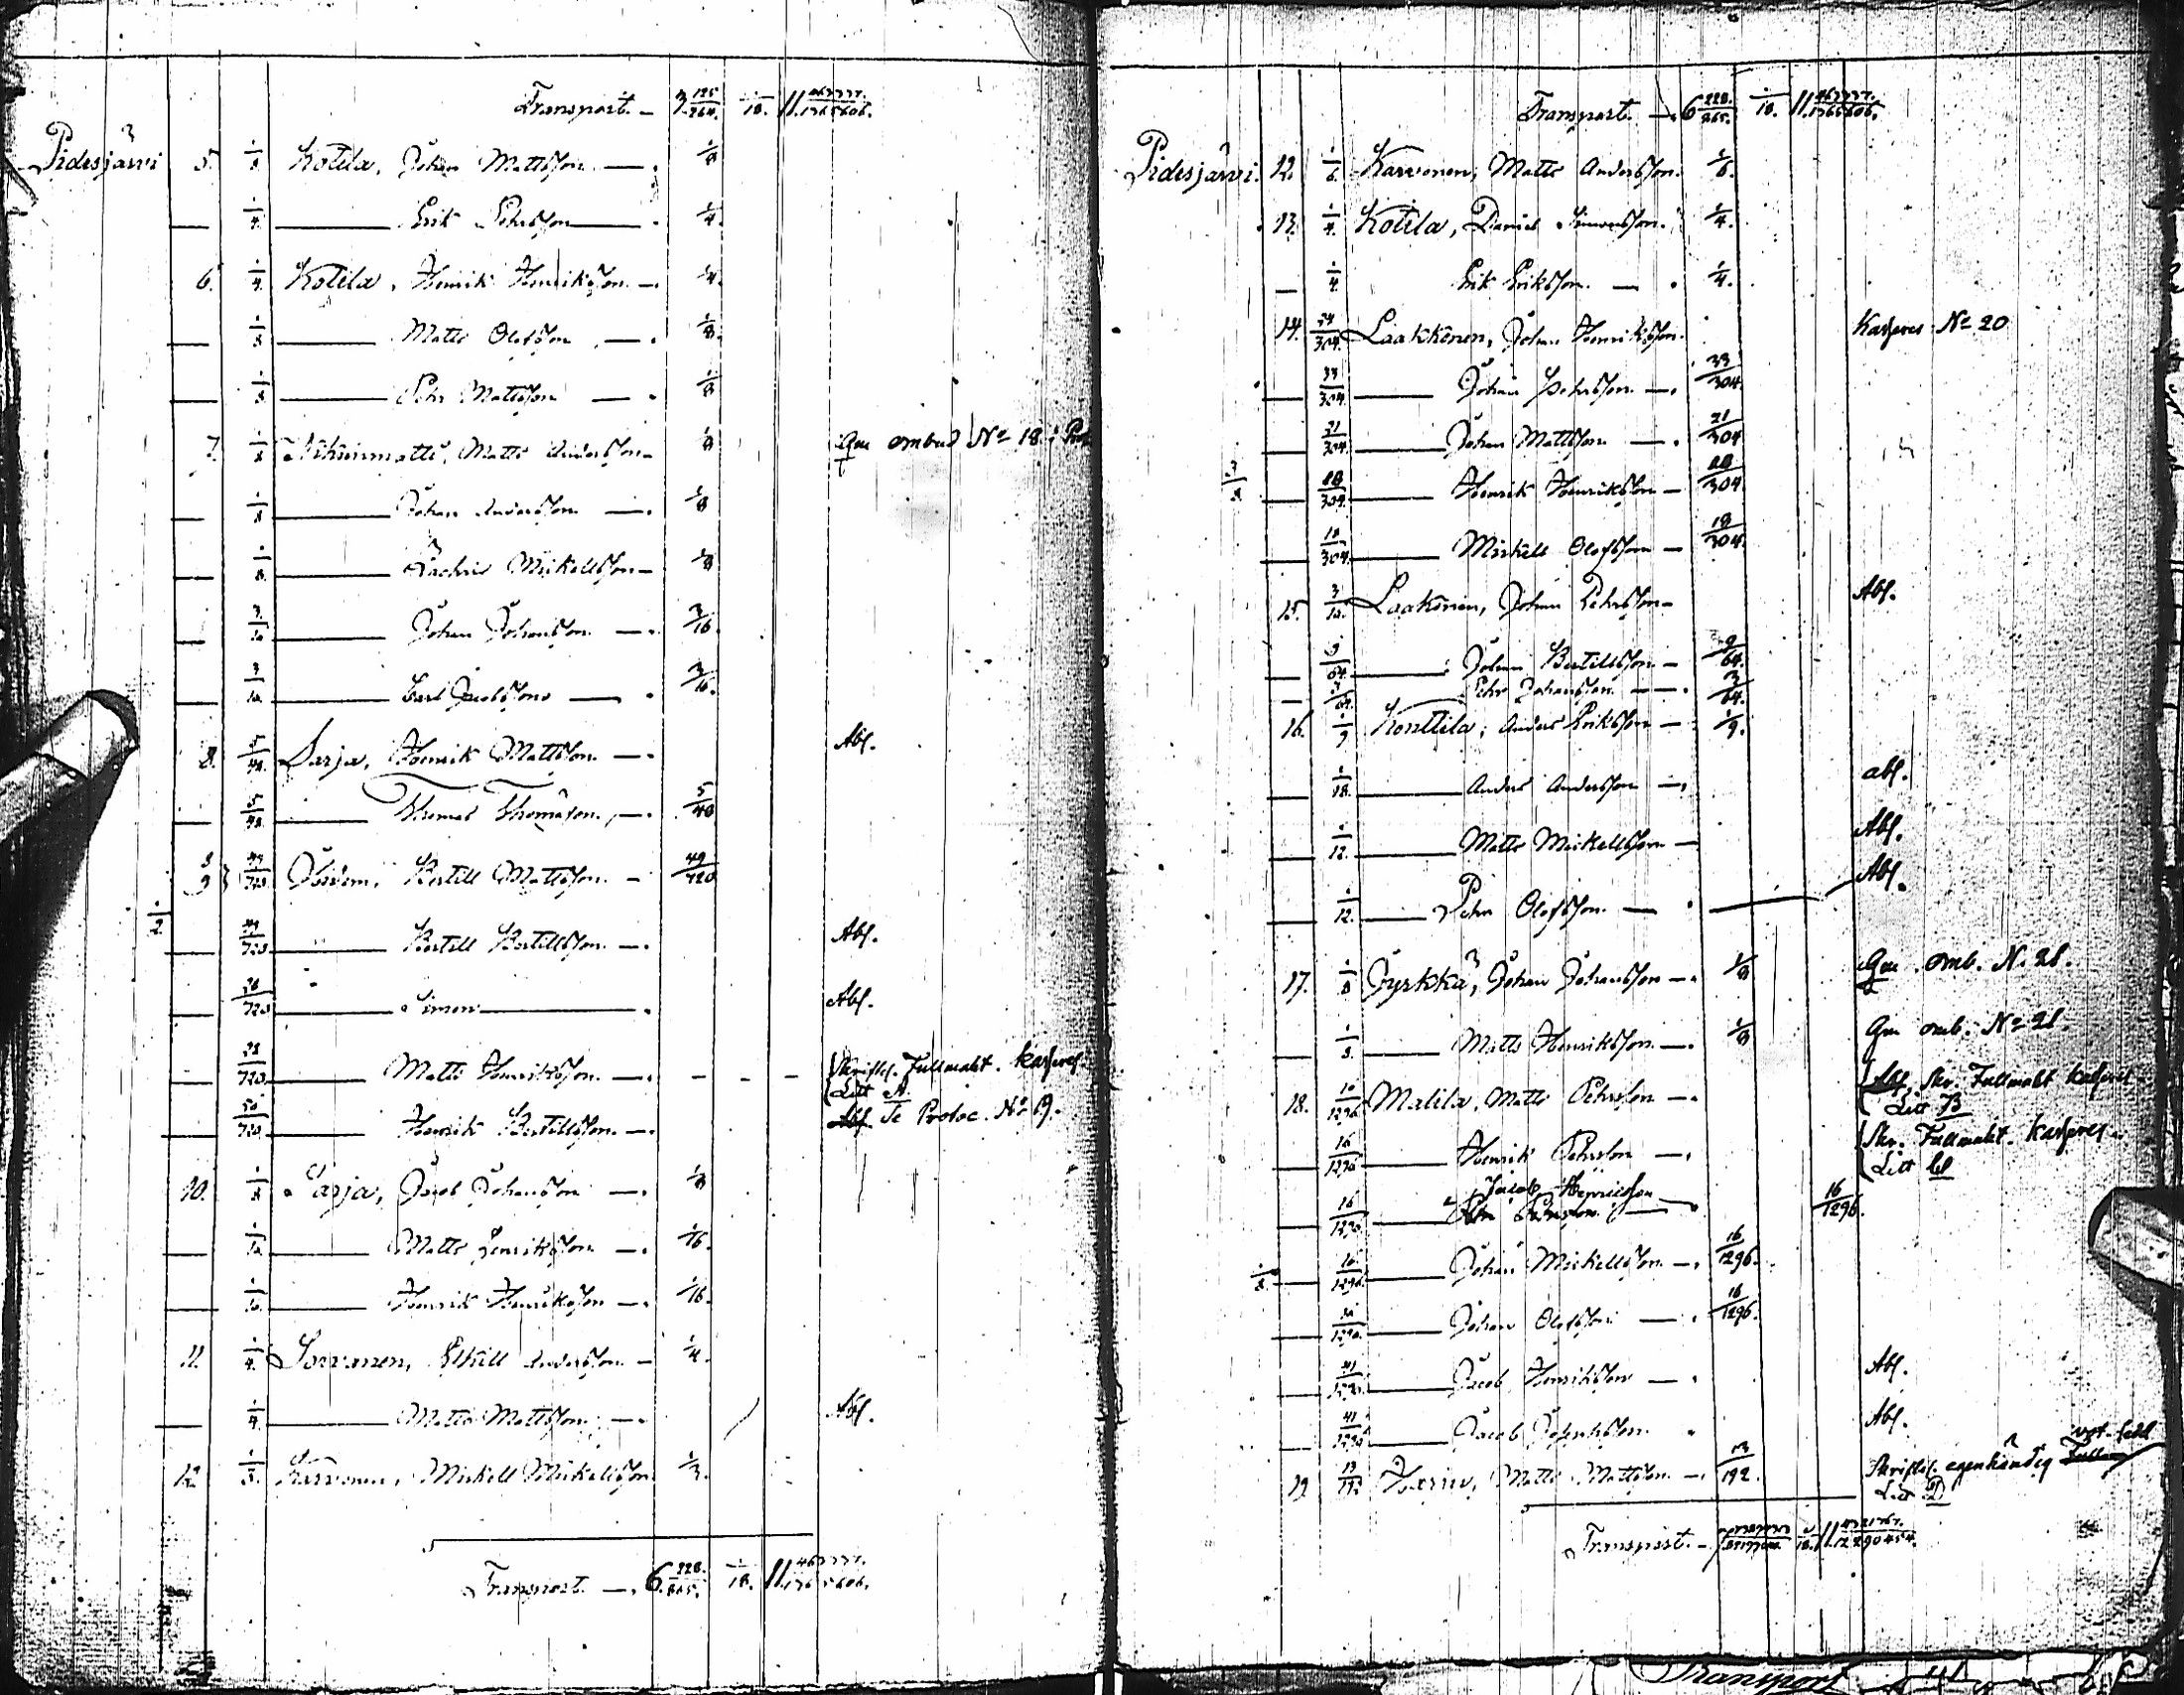 Transport. — 3 125/864. 1/18. 11.
Pidesjärvi 5. 1/8 Kotila, Johan Mattsson — 1/8
— 1/4. — Erik Pehrsson — 1/4.
6. 1/4. Kotila, Henrik Henriksson — 1/4.
— 1/8 — Matts Olofsson — 1/8.
— 1/8 — Pehr Mattsson — 1/8
7. 1/8 Matts Andersson — 1/8 Gm ombud No 18 i
— 1/8 — Johan Andersson — 1/8
— 1/8. — Zachris Mickellsson — 1/8
— 3/16 — Johan Johansson — 3/16
— 3/16 — Carl Jacobsson — 3/16.
8. 5/48. Sarja, Henrik Mattsson — Abs.
— 5/48. — Thomas Thomasson — 5/48
8 9 } 49/720 Bertill Mattsson — 49/720
1/2.
— 720 — Bertill Bertillsson — Abs.
— 720 — Simon — Abs.
— 720 — Matts Henriksson — - - - Skriftl. Fullmakt. kasseras. Litt A.
— 720 — Henrik Bertillsson — Abs. Se Protoc. No 19.
10. 1/8 Sarja, Jacob Johansson — 1/8
— 1/16 — Matts Henriksson — 1/16.
— 1/16 — Henrik Henriksson — 1/16.
11. 1/4. Sorvanen, Andersson — 1/4.
— 1/4. — Matts Mattsson — Abs.
12. 1/3. Karvonen, Mickell Mickellsson 1/3.
Transport. — 6. 228/865. 1/18. 11.
Transport. — 6 228/865. 1/18. 11.
Pidesjärvi. 12. 1/6. Karvonen, Matts Andersson. 1/6.
13. 1/4. Kotila, Daniel Simonsson. 1/4.
— 1/4 Erik Eriksson. — 1/4.
14. 34/304. Laakkonen, Johan Henriksson. Kasseras No 20
— 33/304. — Johan Pehrsson — 33/304.
— 21/304. — Johan Mattsson — 21/304
3/8 — 304. — Henrik Henriksson — 304
— 18/304. — Mickell Olofsson — 18/304.
15. 3/16. Laakonen, Johan Pehrsson — Abs.
— 9/64. — Johan Bertillsson — 9/64.
— 3/64. Pehr Johansson — 3/64.
16. 1/9 Konttila, Anders Eriksson — 1/9.
— 1/18. — Anders Andersson — abs.
— 1/12. — Matts Mickellsson — Abs.
— 1/12. — Pehr Olofsson — Abs.
17. 1/8 Jyrkkä, Johan Johansson — 1/8 Gm omb. N. 21.
— 1/8. — Matts Henriksson — 1/8 Gm omb. No 21.
18. 16/1296 Malila, Matts Pehrsson — Abs, Skr. Fullmakt kasseras Litt B
— 16/1296 — Henrik Pehrsson — Skr. Fullmakt. kasseras Litt C
— 16/1296 — Jacob Henriksson — 16/1296.
1/8. — 16/1296 — Johan Mickellsson — 16/1296.
— 16/1296. — Johan Olofsson — 16/1296.
— 41/1296 — Jacob Henriksson — Abs.
— 41/1296 — Jacob Abs.
19 13/192. Matts Mattsson — 13/192. Skriftl. egenhändig Litt D
Transport. —
Transport